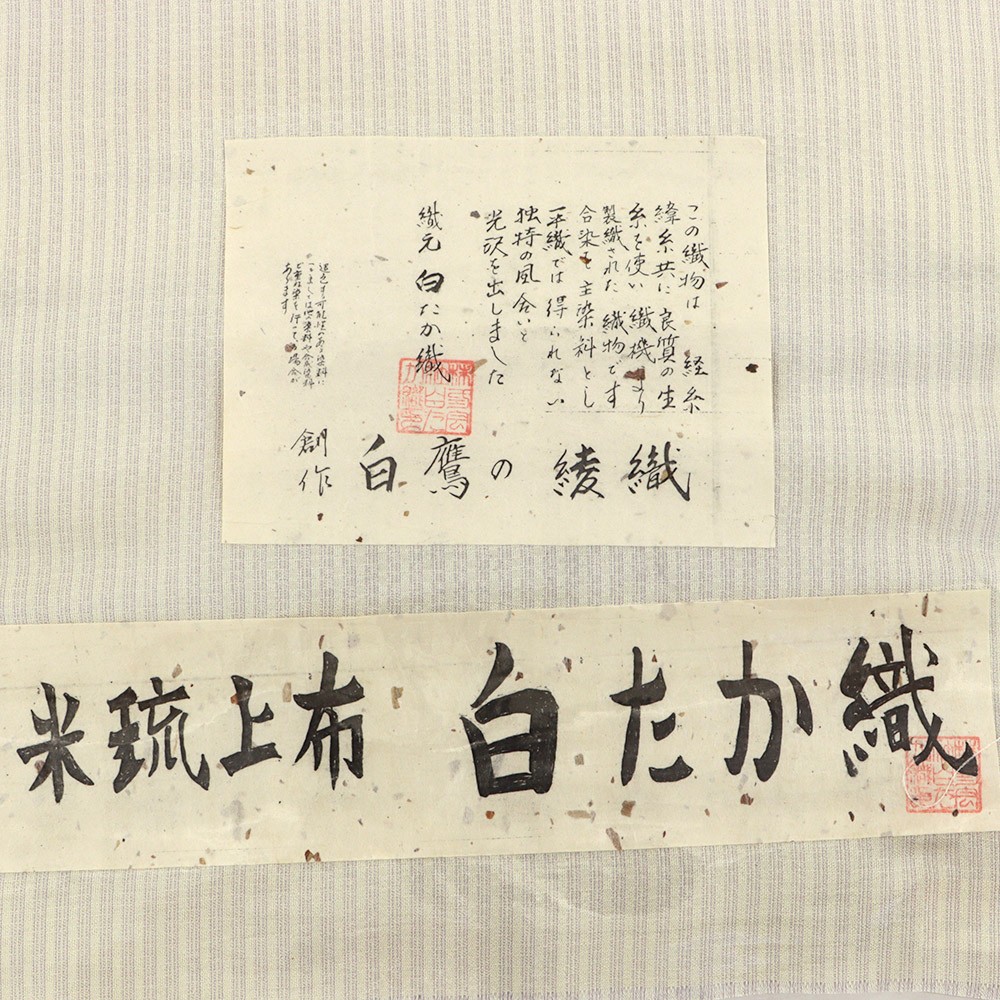 この織物は 経糸
緯糸共に良質の生
糸を使い 織機より
製織された 織物です
合染を主染料とし
平織では得られない
独特の風合いと
光沢を出しました
織元 白たか織
退色する可能性のある染料に
創作
白鷹の綾織
米琉上布 白たか織